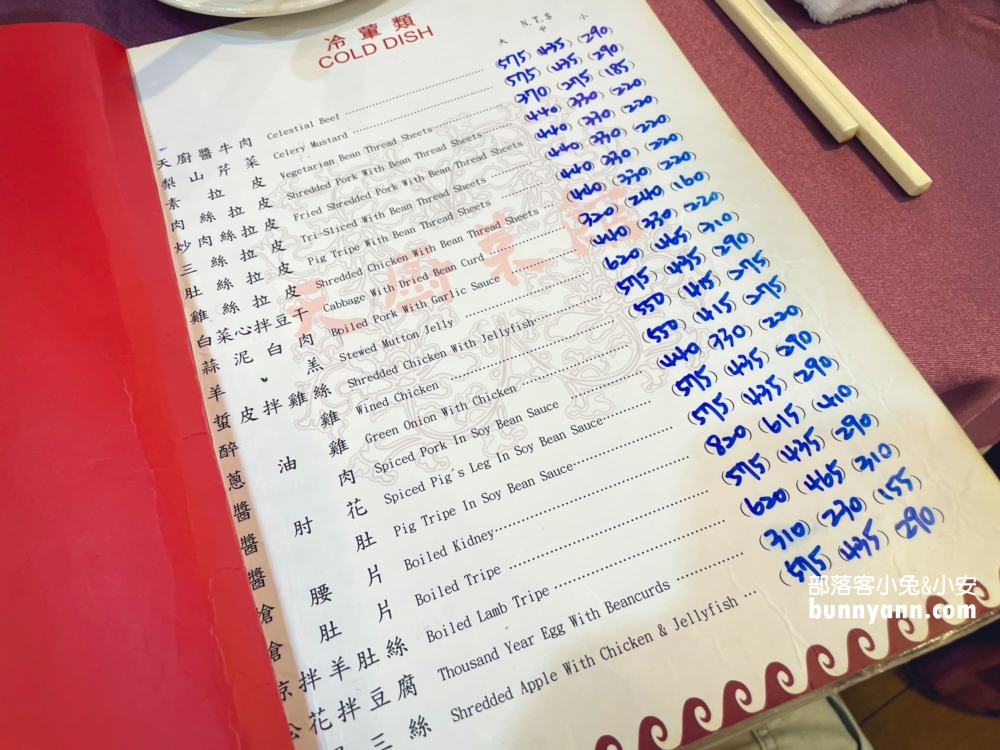 冷葷類
COLD DISH
N.T.$
大 中 小
天廚醬牛肉 Celestial Beef (575) (435) (290)
梨山芹菜 Celery Mustard (575) (435) (290)
素拉皮 Vegetarian Bean Thread Sheets (370) (275) (185)
肉絲拉皮 Shredded Pork With Bean Thread Sheets (440) (330) (220)
炒肉絲拉皮 Fried Shredded Pork With Bean Thread Sheets (440) (330) (220)
三絲拉皮 Tri-Sliced With Bean Thread Sheets (440) (330) (220)
肚絲拉皮 Pig Tripe With Bean Thread Sheets (440) (330) (220)
雞絲拉皮 Shredded Chicken With Bean Thread Sheets (440) (330) (220)
白菜心拌豆干 Cabbage With Dried Bean Curd (320) (240) (160)
蒜泥白肉 Boiled Pork With Garlic Sauce (440) (330) (220)
羊羔 Stewed Mutton Jelly (620) (465) (310)
蜇皮拌雞絲 Shredded Chicken With Jellyfish (575) (435) (290)
醉雞 Wined Chicken (550) (415) (275)
蔥油雞 Green Onion With Chicken (550) (415) (275)
醬肉 Spiced Pork In Soy Bean Sauce (440) (330) (220)
醬肘花 Spiced Pig's Leg In Soy Bean Sauce (575) (435) (290)
醬肚 Pig Tripe In Soy Bean Sauce (575) (435) (290)
熗腰片 Boiled Kidney (820) (615) (410)
熗肚片 Boiled Tripe (575) (435) (290)
涼拌羊肚絲 Boiled Lamb Tripe (620) (465) (310)
花拌豆腐 Thousand Year Egg With Beancurds (310) (230) (155)
三絲 Shredded Apple With Chicken & Jellyfish (575) (435) (290)
部落客小兔&小安
bunnyann.com